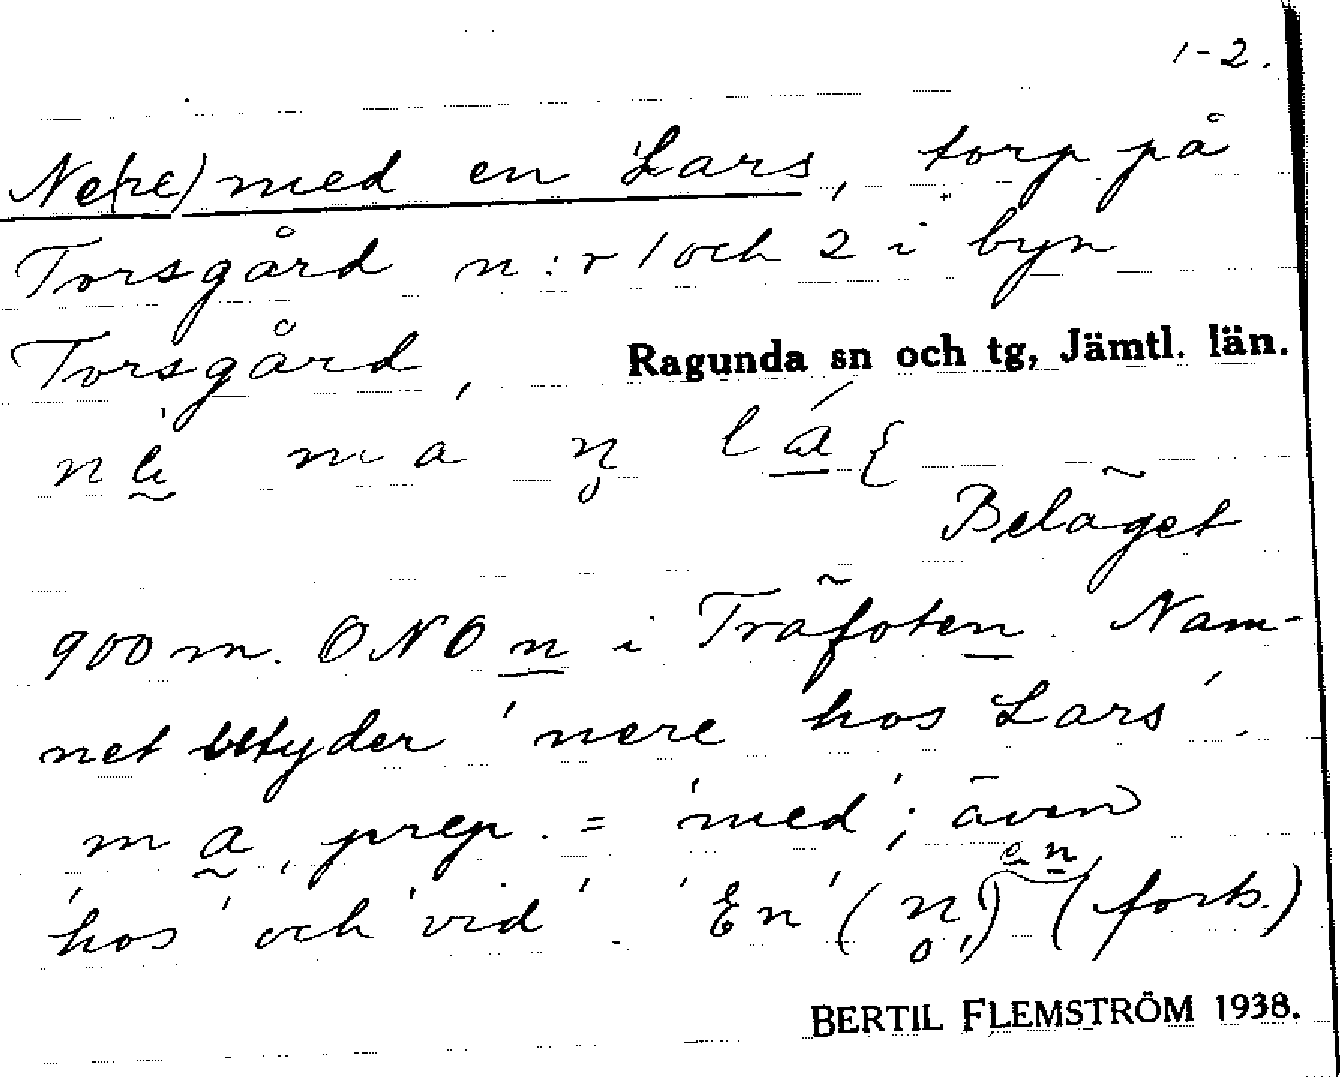 1-2.
Ne(re) med en Lars, torp på
Torsgård n:r 1 och 2 i byn
Torsgård, Ragunda sn och tg, Jämtl. län.
Beläget
900 m. ONO n i Träfoten. Nam-
net betyder 'nere hos Lars'.
ma, prep. = 'med'; även
'hos' och 'vid'. 'En' (n̥) en (forts.)
BERTIL FLEMSTRÖM 1938.